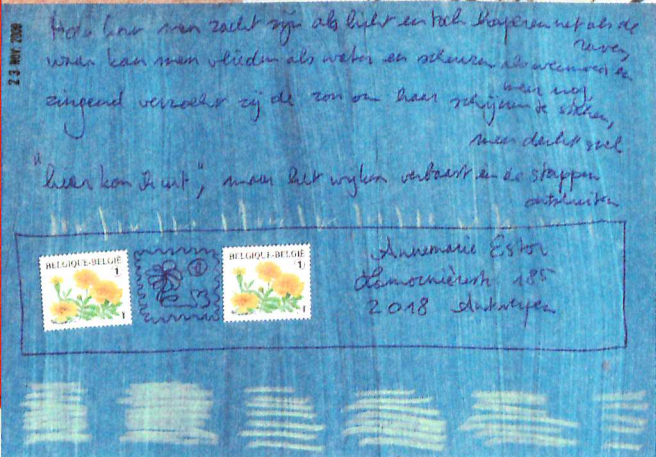 23 NOV 2009
Hoe kan men zacht zijn als licht en toch als de
raven,
waar kan men vlieden als water en scheuren als
weer nog
zingend verzocht zij de zon om haar schijnen te
men dacht snel
"hier kom ik uit", maar het wijken verbaast en de stappen
ontsluiten
BELGIQUE-BELGIË
1
1
1
BELGIQUE-BELGIË
1
1
Annemarie Estor
Lamorinièrestr 185
2018 Antwerpen